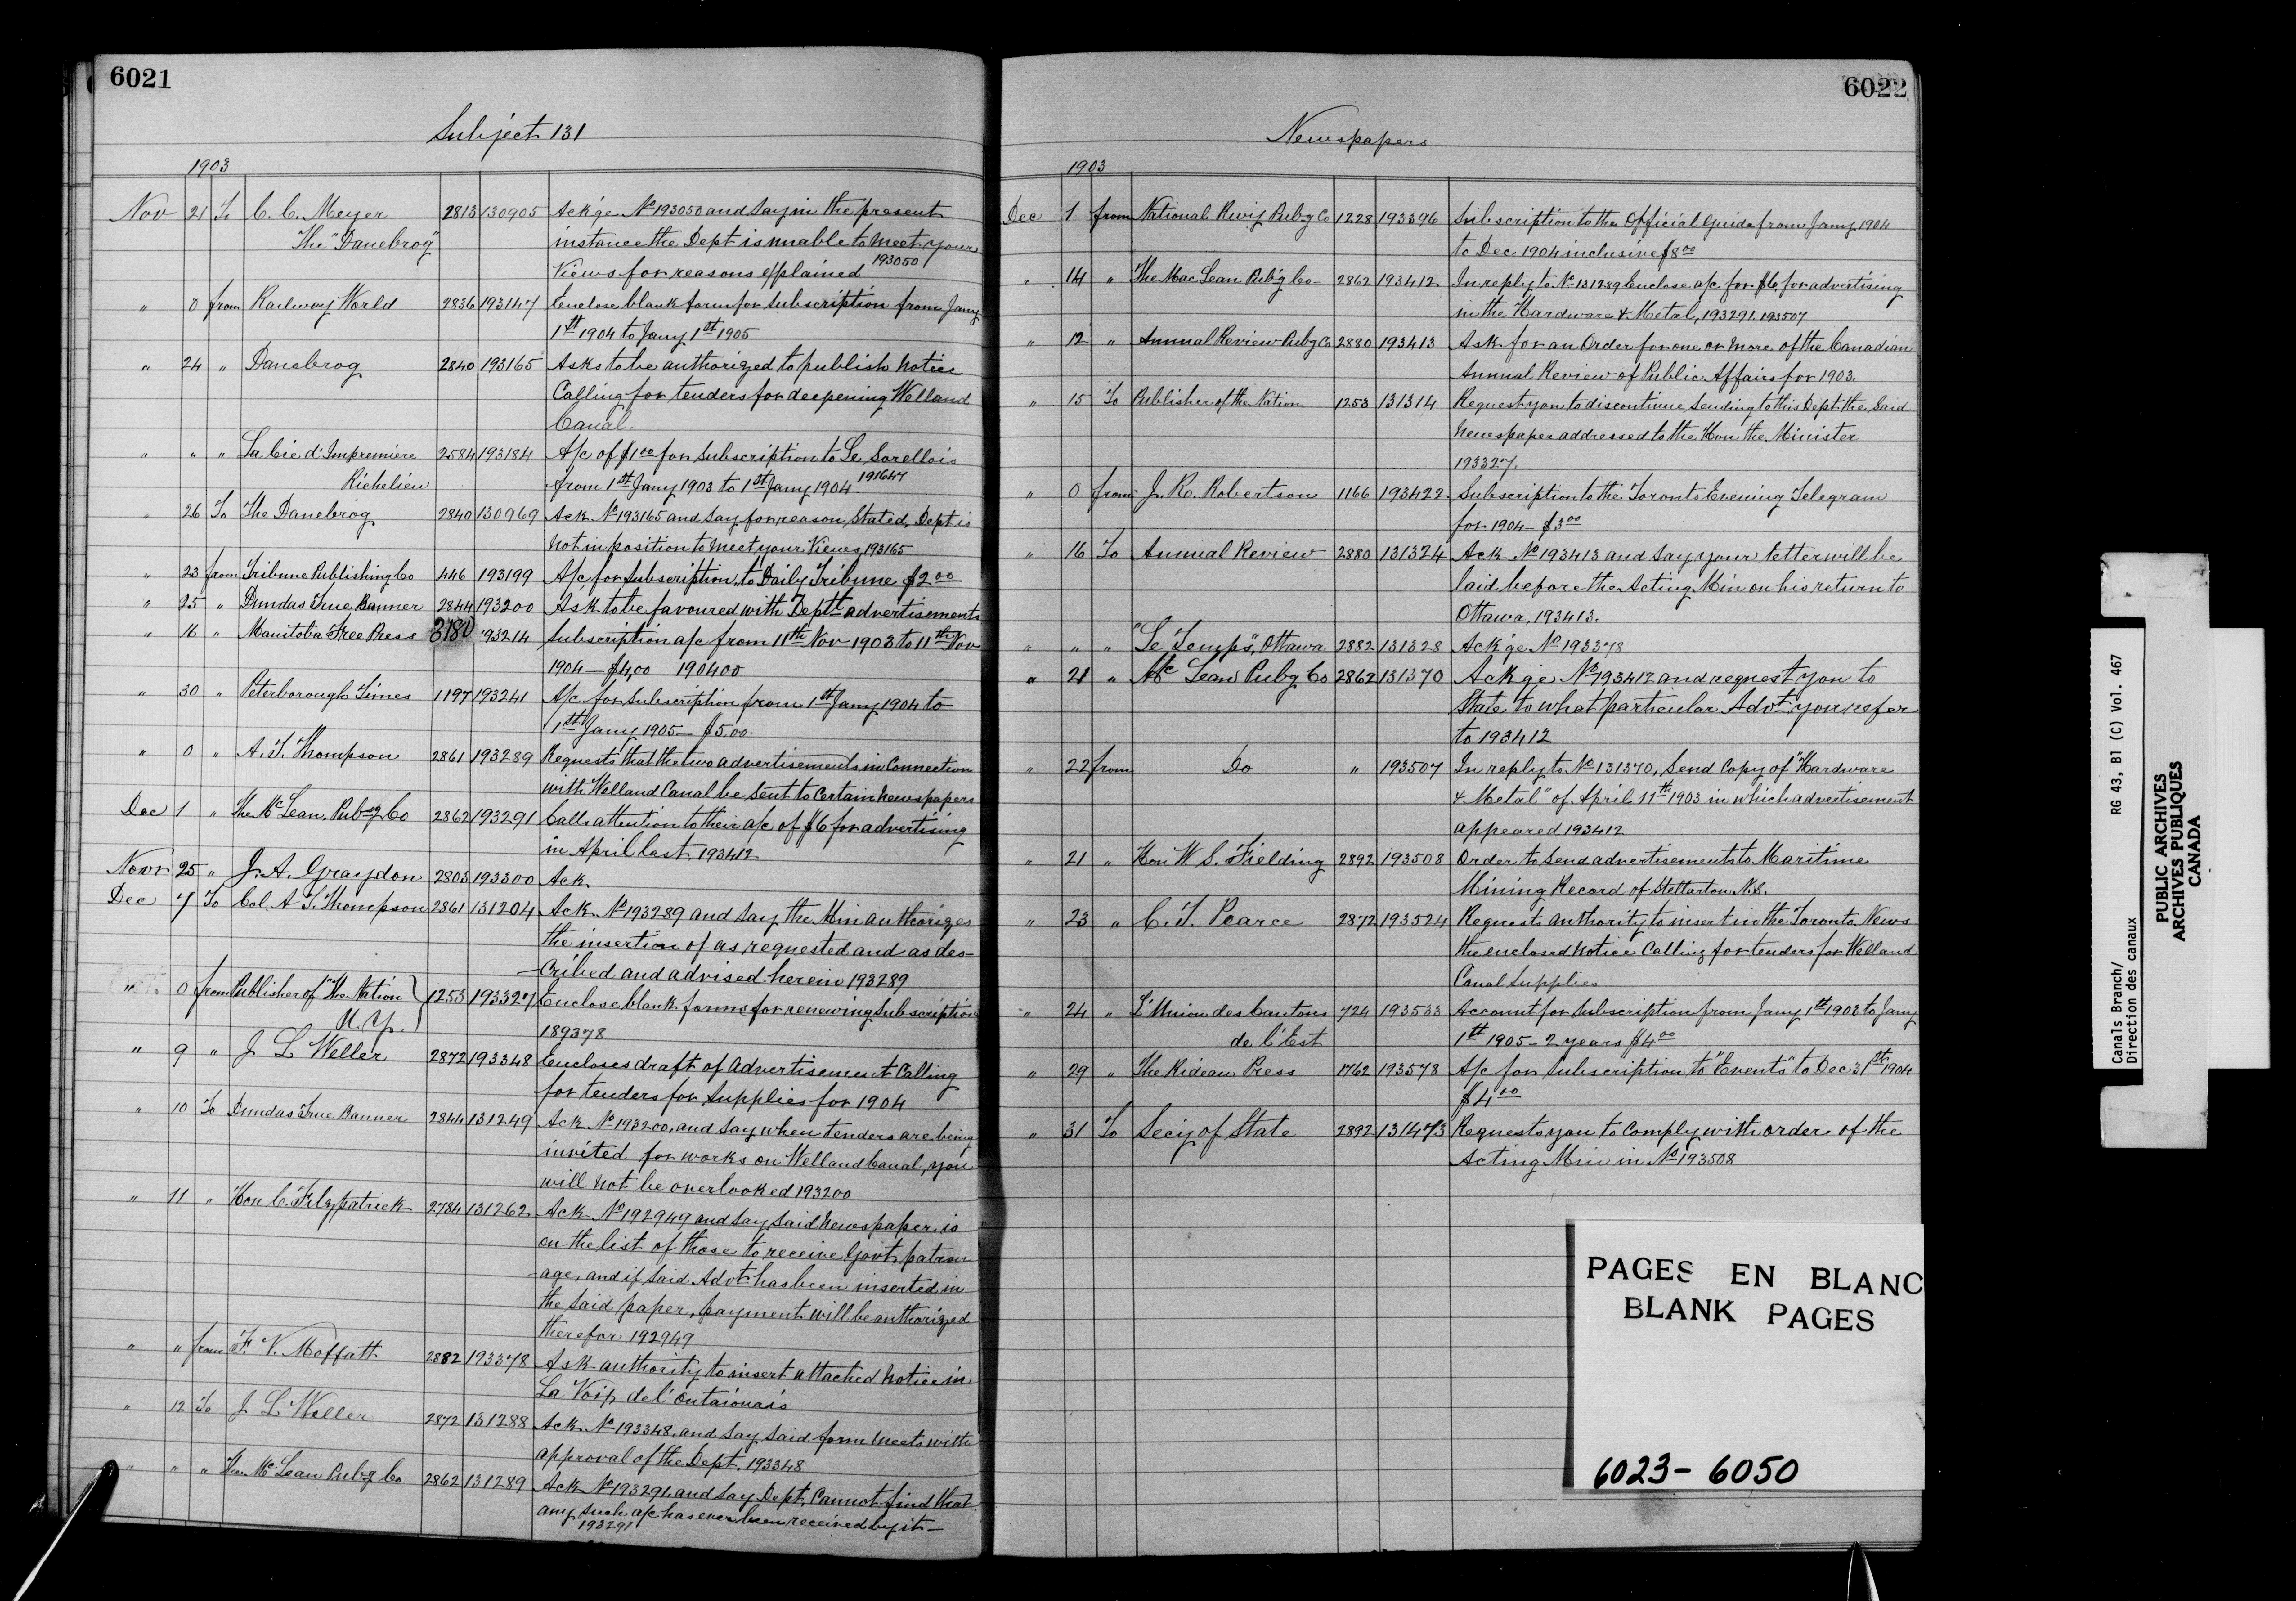 6021
Subject 131
1903
Nov 21 To C. C. Meyer 2813 130905 Ackge No 193050 and say in the present
The "Danebrog" instance the Dept is unable to meet your
views for reasons explained 193050
" 0 from Railway World 2836 193147 Enclose blank form for subscription from Jany
1st 1904 to Jany 1st 1905
" 24 " Danebrog 2840 193165 Asks to be authorized to publish notice
Calling for tenders for deepening Welland
Canal.
" " " La Cie d'Impremiere 2584 193184 A/c of $1 00 for subscription to Le Sorellois
Richelieu from 1st Jany 1903 to 1st Jany 1904 191647
" 26 To The Danebrog 2840 130969 Ack No 193165 and say for reason stated, Dept is
not in position to meet your views, 193165
" 23 from Tribune Publishing Co 446 193199 A/c for subscription to Daily Tribune $2 00
" 25 " Dundas True Banner 2844 193200 Ask to be favoured with Deptl advertisements
" 16 " Manitoba Free Press 3780 193214 Subscription a/c from 11th Nov 1903 to 11th Nov
1904 — $4,00 190400
" 30 " Peterborough Times 1197 193241 A/c for subscription from 1st Jany 1904 to
1st Jany 1905 — $5.00.
" 0 " A. T. Thompson 2861 193289 Requests that the two advertisements in Connection
with Welland Canal be sent to Certain newspapers
Dec 1 " The McLean Pubg Co 2862 193291 Calls attention to their a/c of $6 for advertising
in April last 193412
Novr 25 " J. A. Graydon 2803 193300 Ack.
Dec 7 To Col. A T. Thompson 2861 131204 Ack No 193289 and say the Min authorizes
the insertion of as requested and as des-
cribed and advised herein 193289
" 0 from Publisher of "The Nation 1253 193327 Enclose blank forms for renewing Subscription
N. Y. 189378
" 9 " J L Weller 2872 193348 Encloses draft of Advertisement Calling
for tenders for supplies for 1904
" 10 To Dundas True Banner 2844 131249 Ack No 193200, and say when tenders are being
invited for works on Welland Canal, you
will not be overlooked 193200
" 11 " Hon C. Fitzpatrick 2784 131262 Ack No 192949 and say said newspaper is
on the list of those to receive Govt patron
-age, and if said Advt has been inserted in
the said paper, payment will be authorized
therefor 192949
" " from F. V. Moffatt 2882 193378 Ask authority to insert attached notice in
La Voix de l'Outaiouais
" 12 To J L Weller 2872 131288 Ack No 193348, and say said form meets with
approval of the Dept. 193348
" " " The McLean Pubg Co 2862 131289 Ack No 193291, and say Dept, Cannot find that
any such a/c has ever been received by it —
193291
6022
Newspapers
1903
Dec 1 from National Rwy Pubg Co 1228 193396 Subscription to the Official Guide from Jany 1904
to Dec 1904 inclusive $8 00
" 14 " The MacLean Pub'g Co 2862 193412 In reply to No 131289 Enclose a/c for $6, for advertising
in the Hardware & Metal, 193291. 193507
" 12 " Annual Review Pubg Co 2880 193413 Ask for an Order for one or more of the Canadian
Annual Review of Public Affairs for 1903.
" 15 To Publisher of the Nation 1253 131314 Request you to discontinue sending to this Dept the said
newspaper addressed to the Hon the Minister
193327.
" 0 from J. R. Robertson 1166 193422 Subscription to the Toronto Evening Telegram
for 1904 — $3 00
" 16 To Annual Review 2880 131324 Ack No 193413 and say your letter will be
laid before the Acting Min on his return to
Ottawa, 193413.
" " " "Le Temps", Ottawa 2882 131328 Ackge No 193378
" 21 " McLean Pubg Co 2862 131370 Ackge No 193412 and request you to
state to what particular Advt you refer
to 193412
" 22 from Do " 193507 In reply to No 131370, Send Copy of "Hardware
& Metal" of April 11th 1903 in which advertisement
appeared 193412
" 21 " Hon W. S. Fielding 2892 193508 Order to send advertisements to Maritime
Mining Record of Stellarton N.S.
" 23 " C. T. Pearce 2872 193524 Request authority to insert in the Toronto News
the enclosed notice Calling for tenders for Welland
Canal Supplies
" 24 " L'Union des Cantons 724 193533 Account for subscription from Jany 1st 1903 to Jany
de l'Est 1st 1905 — 2 years $4 00
" 29 " The Rideau Press 1762 193578 A/c for subscription to "Events" to Dec 31st 1904
$4 00
" 31 To Secy of State 2892 131473 Requests you to Comply with order of the
Acting Min in No 193508
PAGES EN BLANC
BLANK PAGES
6023 - 6050
Canals Branch/ RG 43, B1 (C) Vol. 467
Direction des canaux
PUBLIC ARCHIVES
ARCHIVES PUBLIQUES
CANADA